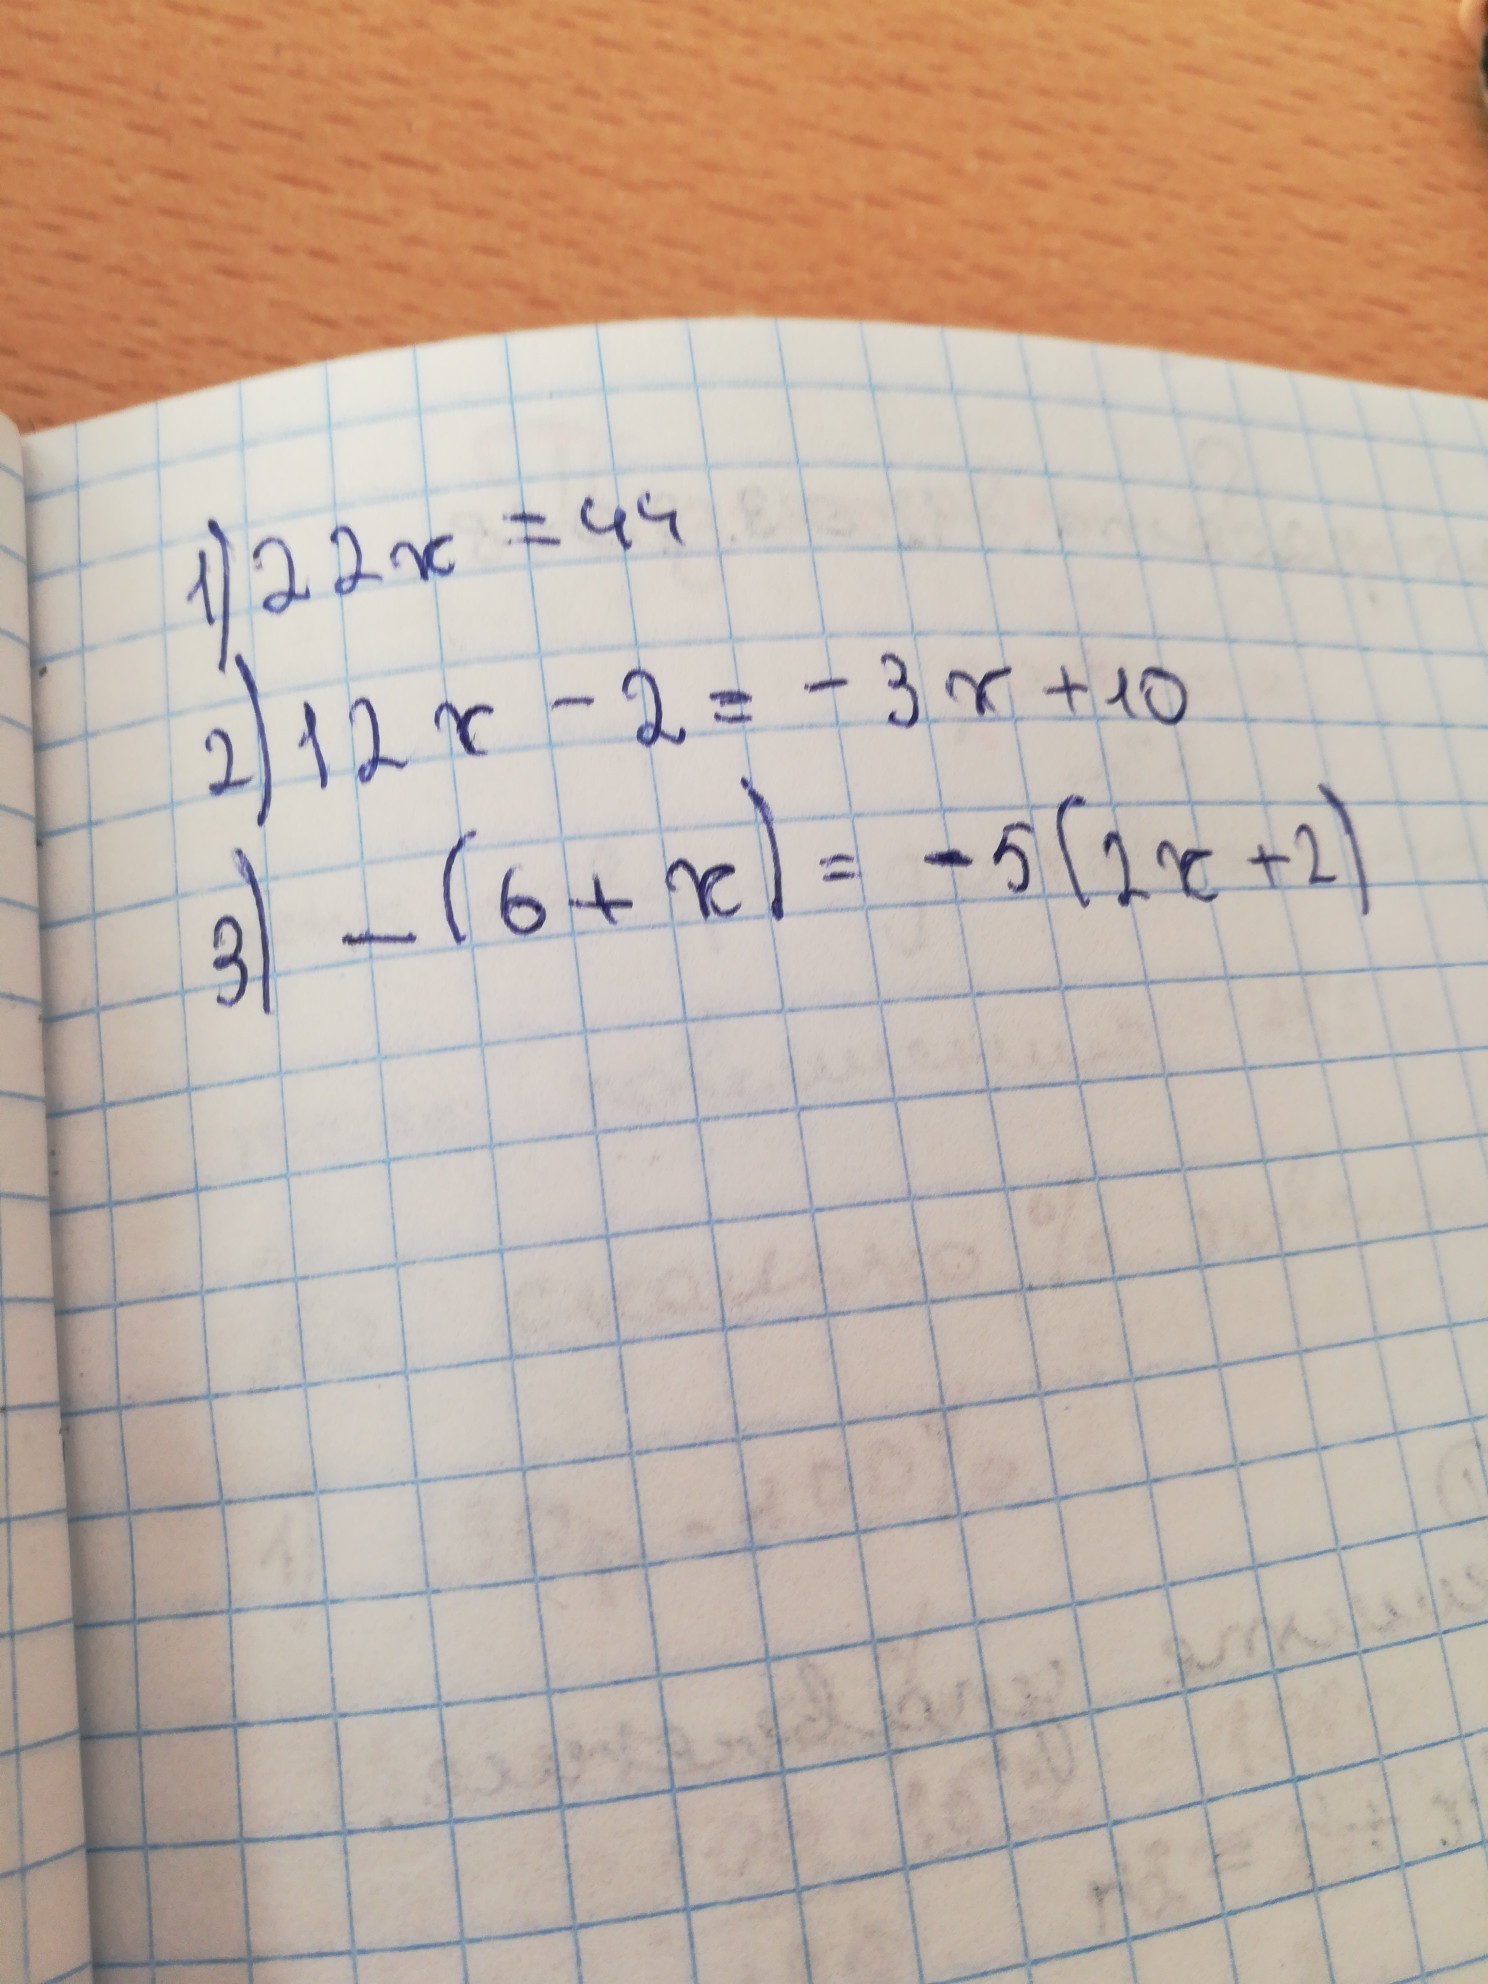 1) 22x = 44
2) 12x - 2 = - 3x + 10
3) - (6 + x) = - 5(2x + 2)